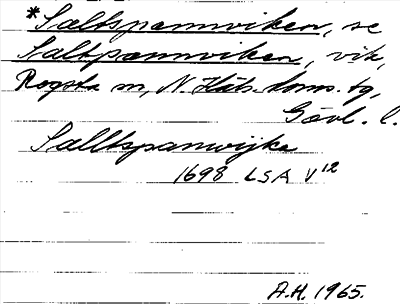 *Saltspannviken, se
Saltpannviken, vik,
Rogsta sn, N. Häls. doms. tg,
Gävl. l.
Salltspanwijka
1698 LSA V12
A.H. 1965.